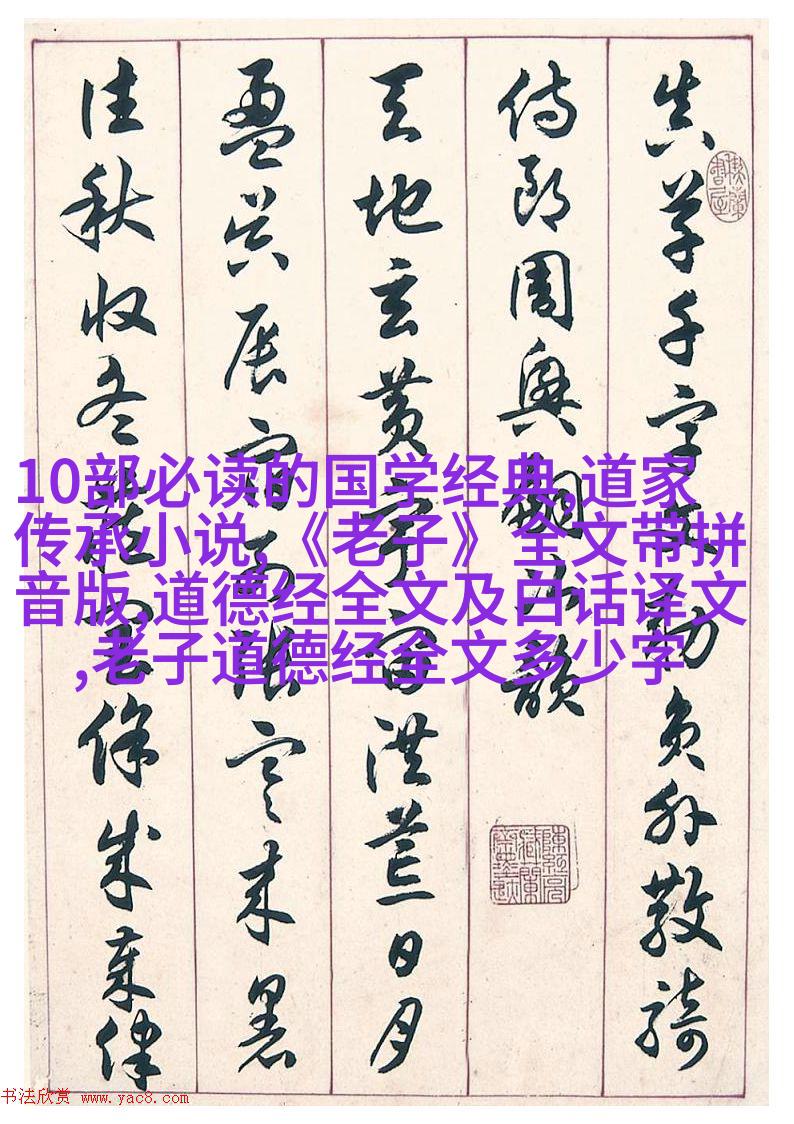 真草千字文勅員外散騎
侍郎周興嗣次韻
天地玄黃宇宙洪荒日月
盈昃辰宿列張寒来暑
往秋收冬藏閏餘成歲律
10部必读的国学经典,道家
传承小说,《老子》全文带拼
音版,道德经全文及白话译文
,老子道德经全文多少字
书法欣赏 www.yac8.com